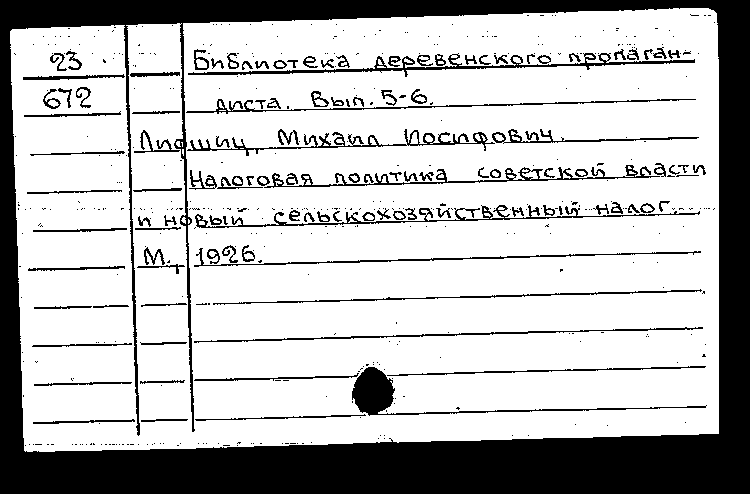 23 Библиотека деревенского пропаган-
672 диста. Вып. 5-6.
Лифшиц, Михаил Иосифович.
Налоговая политика советской власти
и новый сельскохозяйственный налог.-
М., 1926.